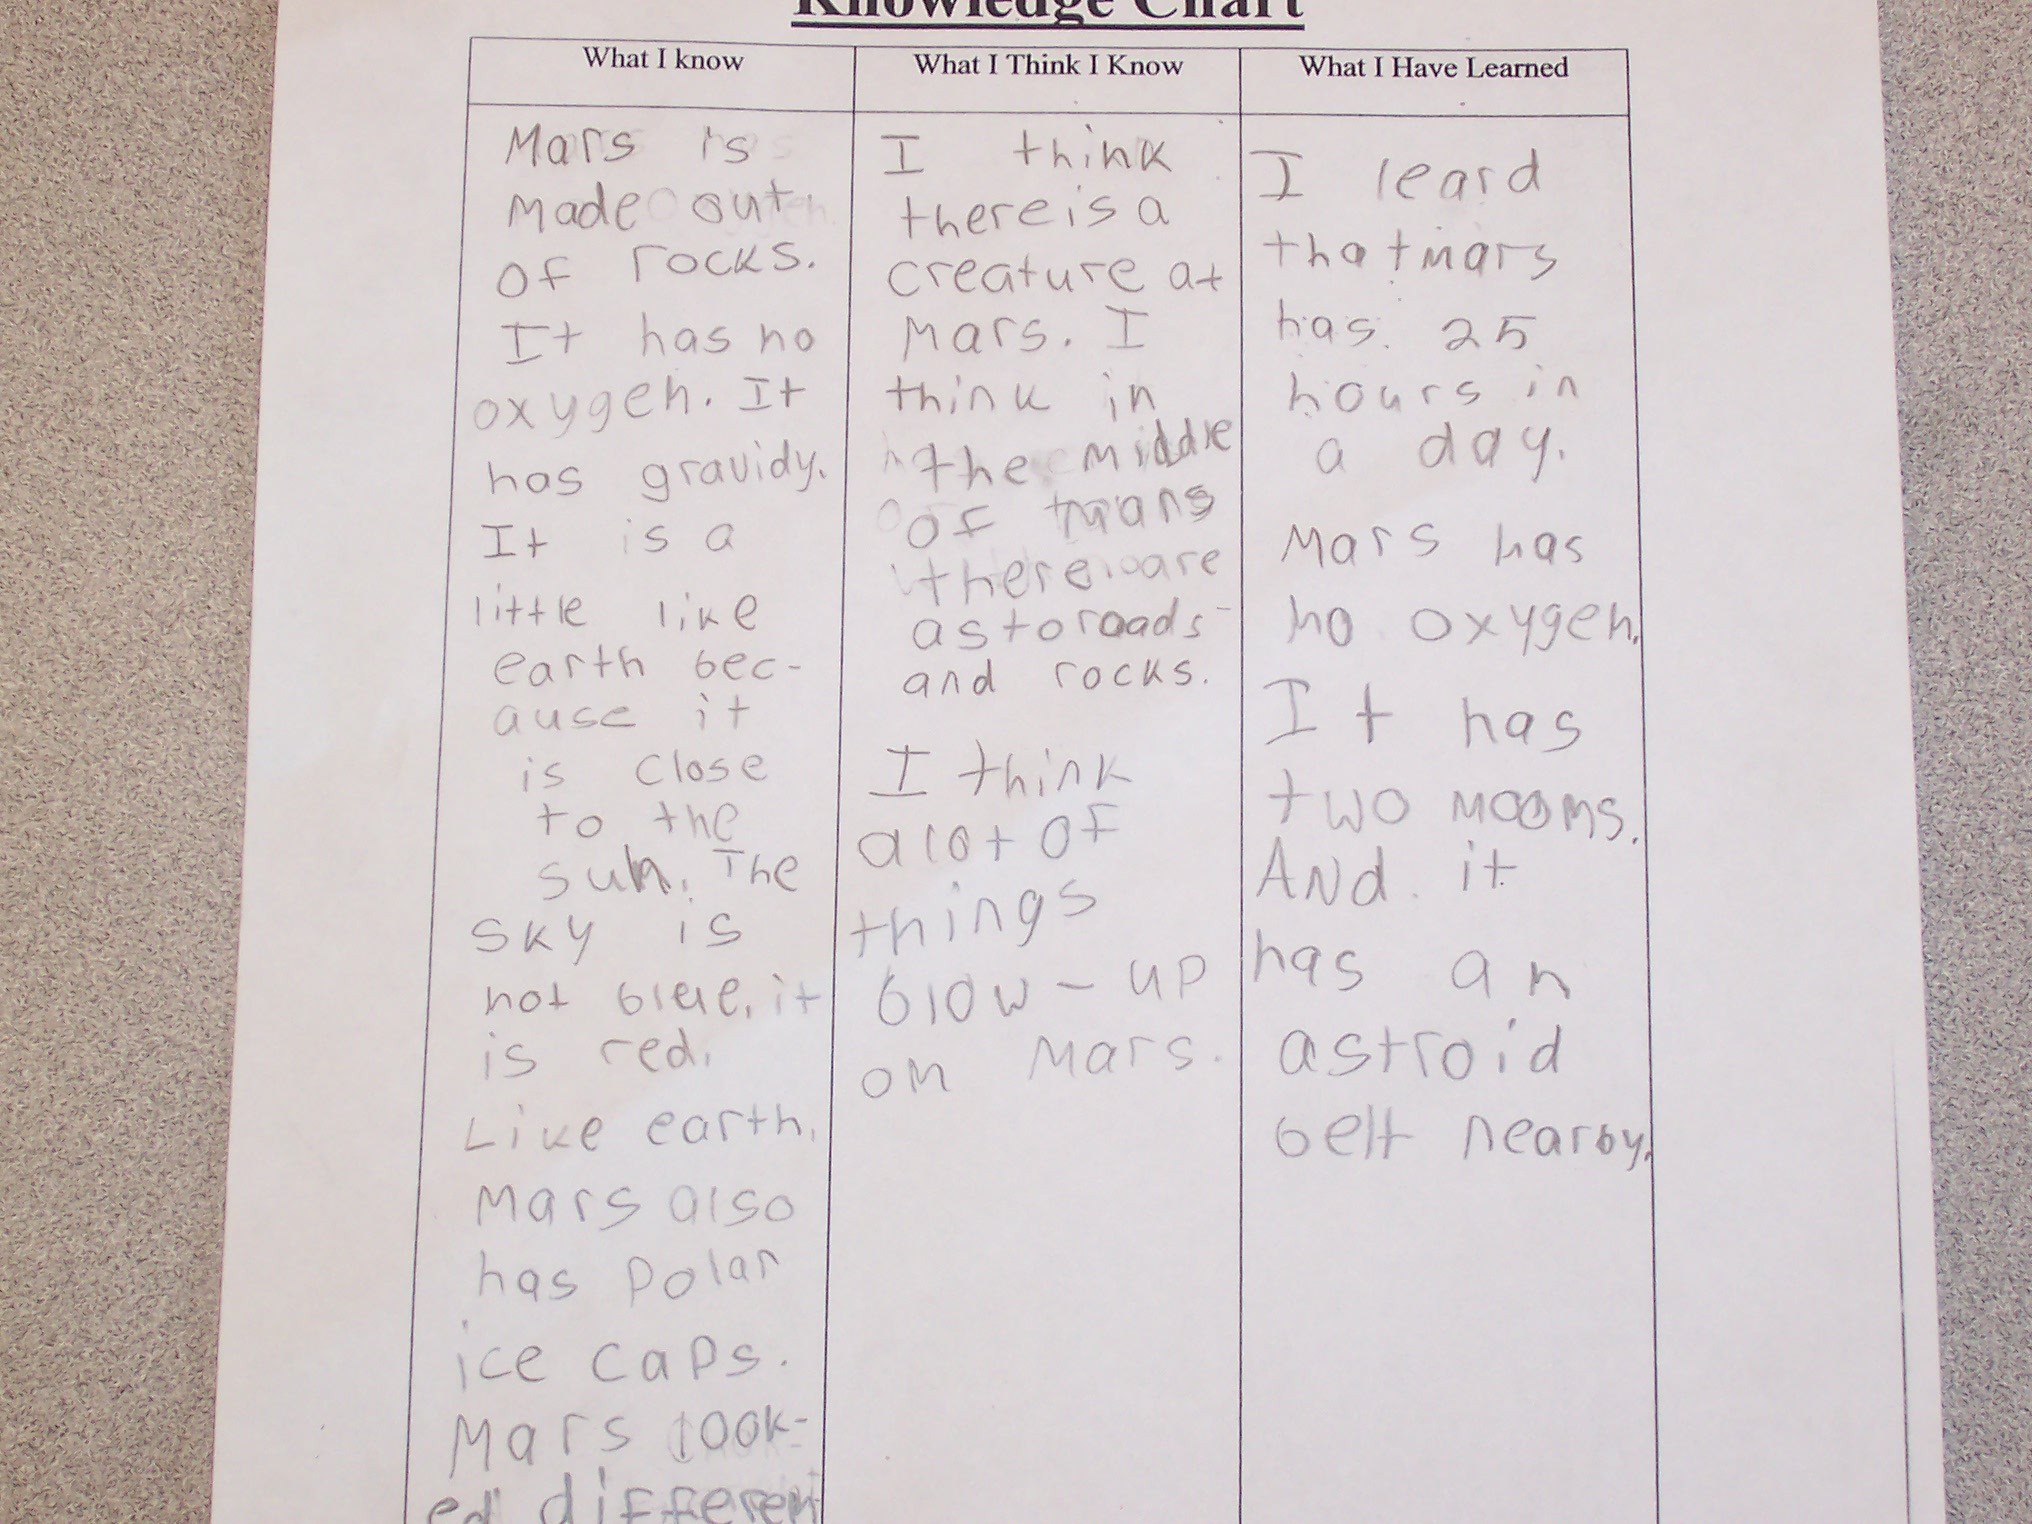 Knowledge Chart
What I know
Mars is
made out
of rocks.
It has no
oxygen. It
has gravidy.
It is a
little like
earth bec-
ause it
is close
to the
sun. The
sky is
not blue. it
is red.
Like earth,
Mars also
has polar
ice caps.
Mars look-
ed different
What I Think I Know
I think
there is a
creature at
Mars. I
think in
the middle
of mars
there are
astoroads
and rocks.
I think
alot of
things
blow-up
on Mars.
What I Have Learned
I leard
that mars
has 25
hours in
a day.
Mars has
no oxygen.
It has
two mooms.
And it
has an
astroid
belt nearby.